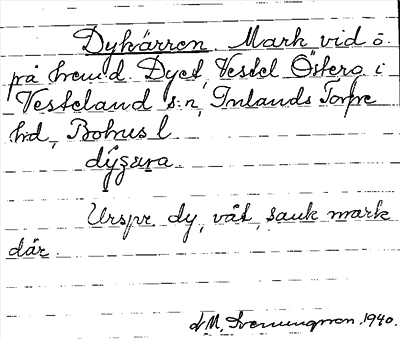 Dykärren. Mark vid ö.
på hemd. Dyet, Vestel Östero i
Vesteland s:n, Inlands Torpe
hd, Bohus l
dýgæra
Urspr. dy, våt, sank mark
där.
1940.